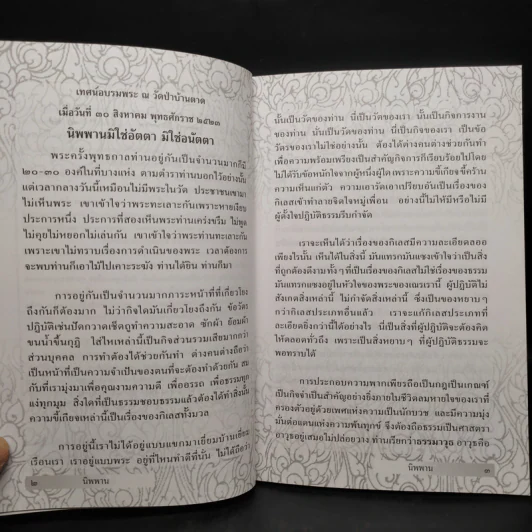 เทศน์อบรมพระ ณ วัดป่าบ้านตาด
เมื่อวันที่ ๓๐ สิงหาคม พุทธศักราช ๒๕๒๑
นิพพานมิใช่อัตตา มิใช่อนัตตา
พระครั้งพุทธกาลท่านอยู่กันเป็นจำนวนมากก็มี
๒๐-๓๐ องค์ในที่บางแห่ง ตามตำราท่านบอกไว้อย่างนั้น
แต่เวลากลางวันนี้เหมือนไม่มีพระในวัด ประชาชนเขามา
ไม่เห็นพระ เขาเข้าใจว่าพระทะเลาะกันเพราะหายเงียบ
ประการหนึ่ง ประการที่สองเห็นพระท่านเคร่งขรึม ไม่พูด
ไม่คุยไม่หยอกไม่เล่นกัน เขาเข้าใจว่าพระท่านทะเลาะกัน
เพราะเขาไม่ทราบเรื่องการดำเนินของพระ เวลาต้องการ
จะพบท่านก็เอาไม้ไปเคาะระฆัง ท่านได้ยิน ท่านก็มา
การอยู่กันเป็นจำนวนมากภาระหน้าที่ที่เกี่ยวโยง
ถึงกันก็ต้องมาก ไม่ว่ากิจใดมันเกี่ยวโยงถึงกัน ข้อวัตร
ปฏิบัติเช่นปัดกวาดเช็ดถูทำความสะอาด ซักผ้า ย้อมผ้า
ขนน้ำขึ้นกุฎี ใส่ไหเหล่านี้เป็นกิจส่วนรวมเสียมากกว่า
ส่วนบุคคล การทำต้องได้ช่วยกันทำ ต่างคนต่างถือว่า
เป็นหน้าที่เป็นความจำเป็นของตนที่จะต้องทำด้วยกัน สม
กับที่เรามุ่งมาเพื่อคุณงามความดี เพื่ออรรถ เพื่อธรรมทุก
แง่ทุกมุม สิ่งใดที่เป็นธรรมชอบธรรมแล้วต้องได้ทำสิ่งนั้น
ความขี้เกียจเหล่านี้เป็นเรื่องของกิเลสทั้งมวล
การอยู่นี้เราไม่ได้อยู่แบบแขกมาเยี่ยมบ้านเยี่ยม
เรือนเรา เราอยู่แบบพระ อยู่ที่ไหนทำดีที่นั้น ไม่ได้ถือว่า
๒ นิพพาน
นั้นเป็นวัดของท่าน นี่เป็นวัดของเรา นั้นเป็นกิจการงาน
ของท่าน นั้นเป็นวัดของท่าน นี้เป็นกิจของเรา เป็นข้อ
วัตรของเราไม่ใช่อย่างนั้น ต้องได้ต่างคนต่างช่วยกันทำ
เพื่อความพร้อมเพรียงเป็นสำคัญกิจการก็เรียบร้อยไปโดย
ไม่ได้รับข้อหนักใจจากผู้หนึ่งผู้ใด เพราะความขี้เกียจขี้คร้าน
ความเห็นแก่ตัว ความเอารัดเอาเปรียบอันเป็นเรื่องของ
กิเลสเข้าทำลายจิตใจหมู่เพื่อน อย่างนี้ไม่มีให้หรือไม่มี
ผู้ตั้งใจปฏิบัติธรรมรีบกำจัด
เราจะเห็นได้ว่าเรื่องของกิเลสมีความละเอียดลออ
เพียงไรนั้น เห็นได้ในสิ่งนี้ มันแทรกมันแซงเข้าใจว่าเป็นสิ่ง
ที่ถูกต้องดีงามทั้งๆที่เป็นเรื่องของกิเลสไม่ใช่เรื่องของธรรม
มันแทรกแซงอยู่ในหัวใจของพระของเณรเรานี้ ผู้ปฏิบัติไม่
สังเกตสิ่งเหล่านี้ ไม่กำจัดสิ่งเหล่านี้ ซึ่งเป็นของหยาบๆ
กว่ากิเลสประเภทอื่นแล้ว เราจะแก้กิเลสประเภทที่
ละเอียดยิ่งกว่านี้ได้อย่างไร นี่เป็นสิ่งที่ผู้ปฏิบัติจะต้องคิด
ให้ตลอดทั่วถึง เพราะเป็นสิ่งหยาบๆ ที่ผู้ปฏิบัติธรรมจะ
พอทราบได้
การประกอบความพากเพียรถือเป็นกฎเป็นเกณฑ์
เป็นกิจจำเป็นสำคัญอย่างยิ่งภายในชีวิตลมหายใจของเราที่
ครองตัวอยู่ด้วยเพศแห่งความเป็นนักบวช และมีความมุ่ง
มั่นต่อแดนแห่งความพ้นทุกข์ จึงต้องถือธรรมเป็นศาสตรา
อาวุธอยู่เสมอไม่ปล่อยวาง ท่านเรียกว่าธรรมาวุธ อาวุธคือ
นิพพาน ๓